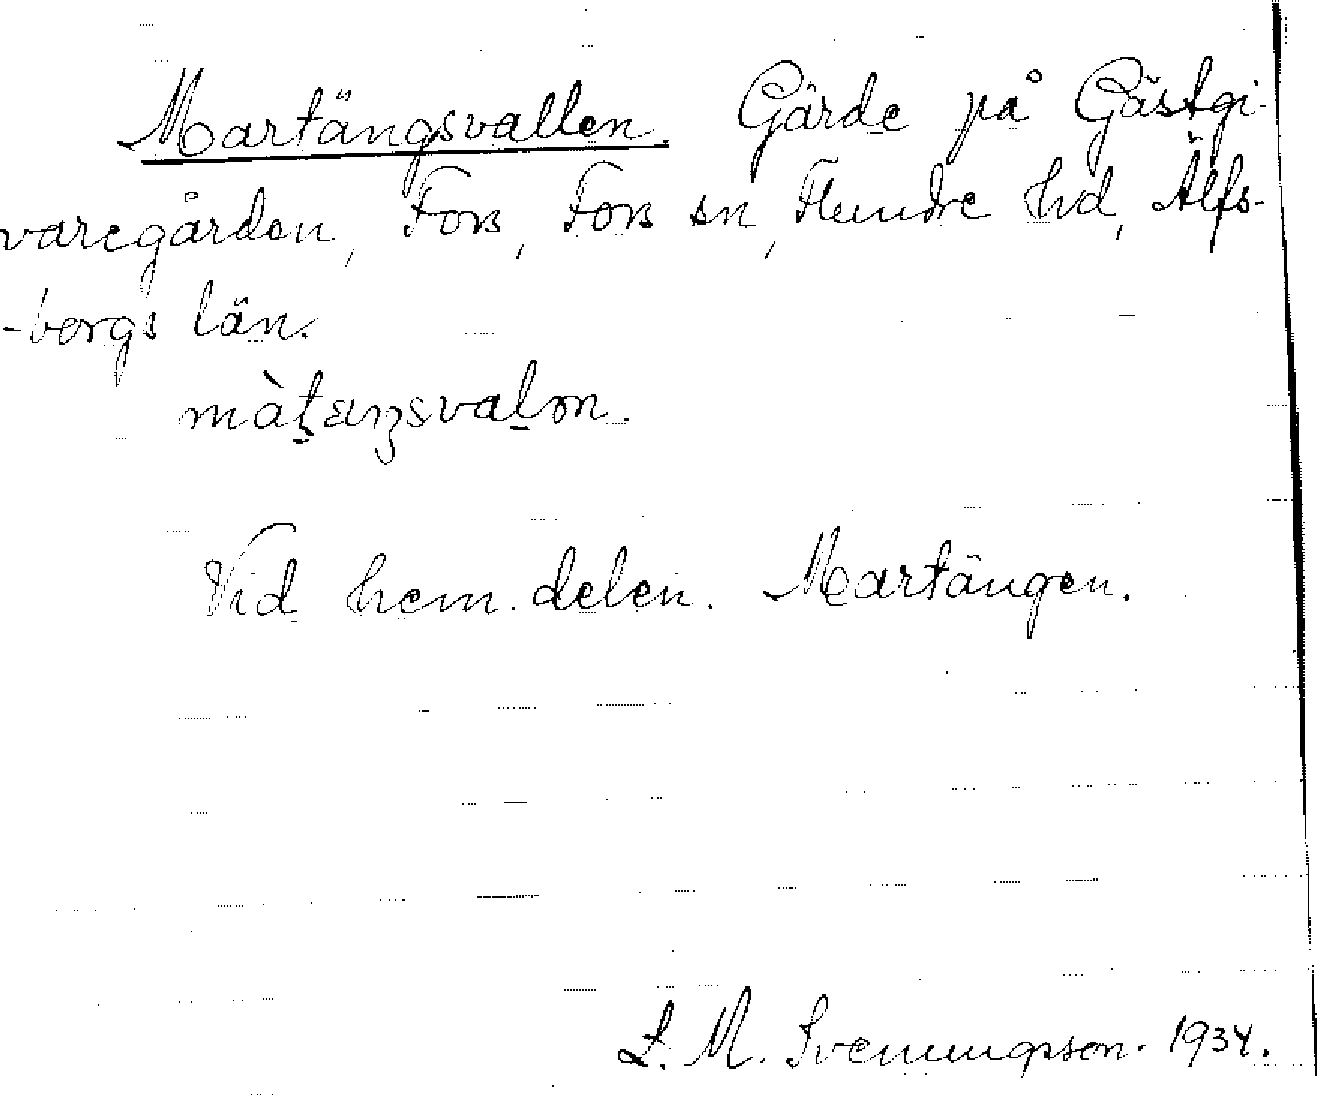 Martängsvallen. Gärde på Gästgi-
varegården, Fors, Fors sn, Flundre hd, Älfs-
-borgs län.
Vid hem. delen. Martängen.
L. M. Svenungsson. 1934.